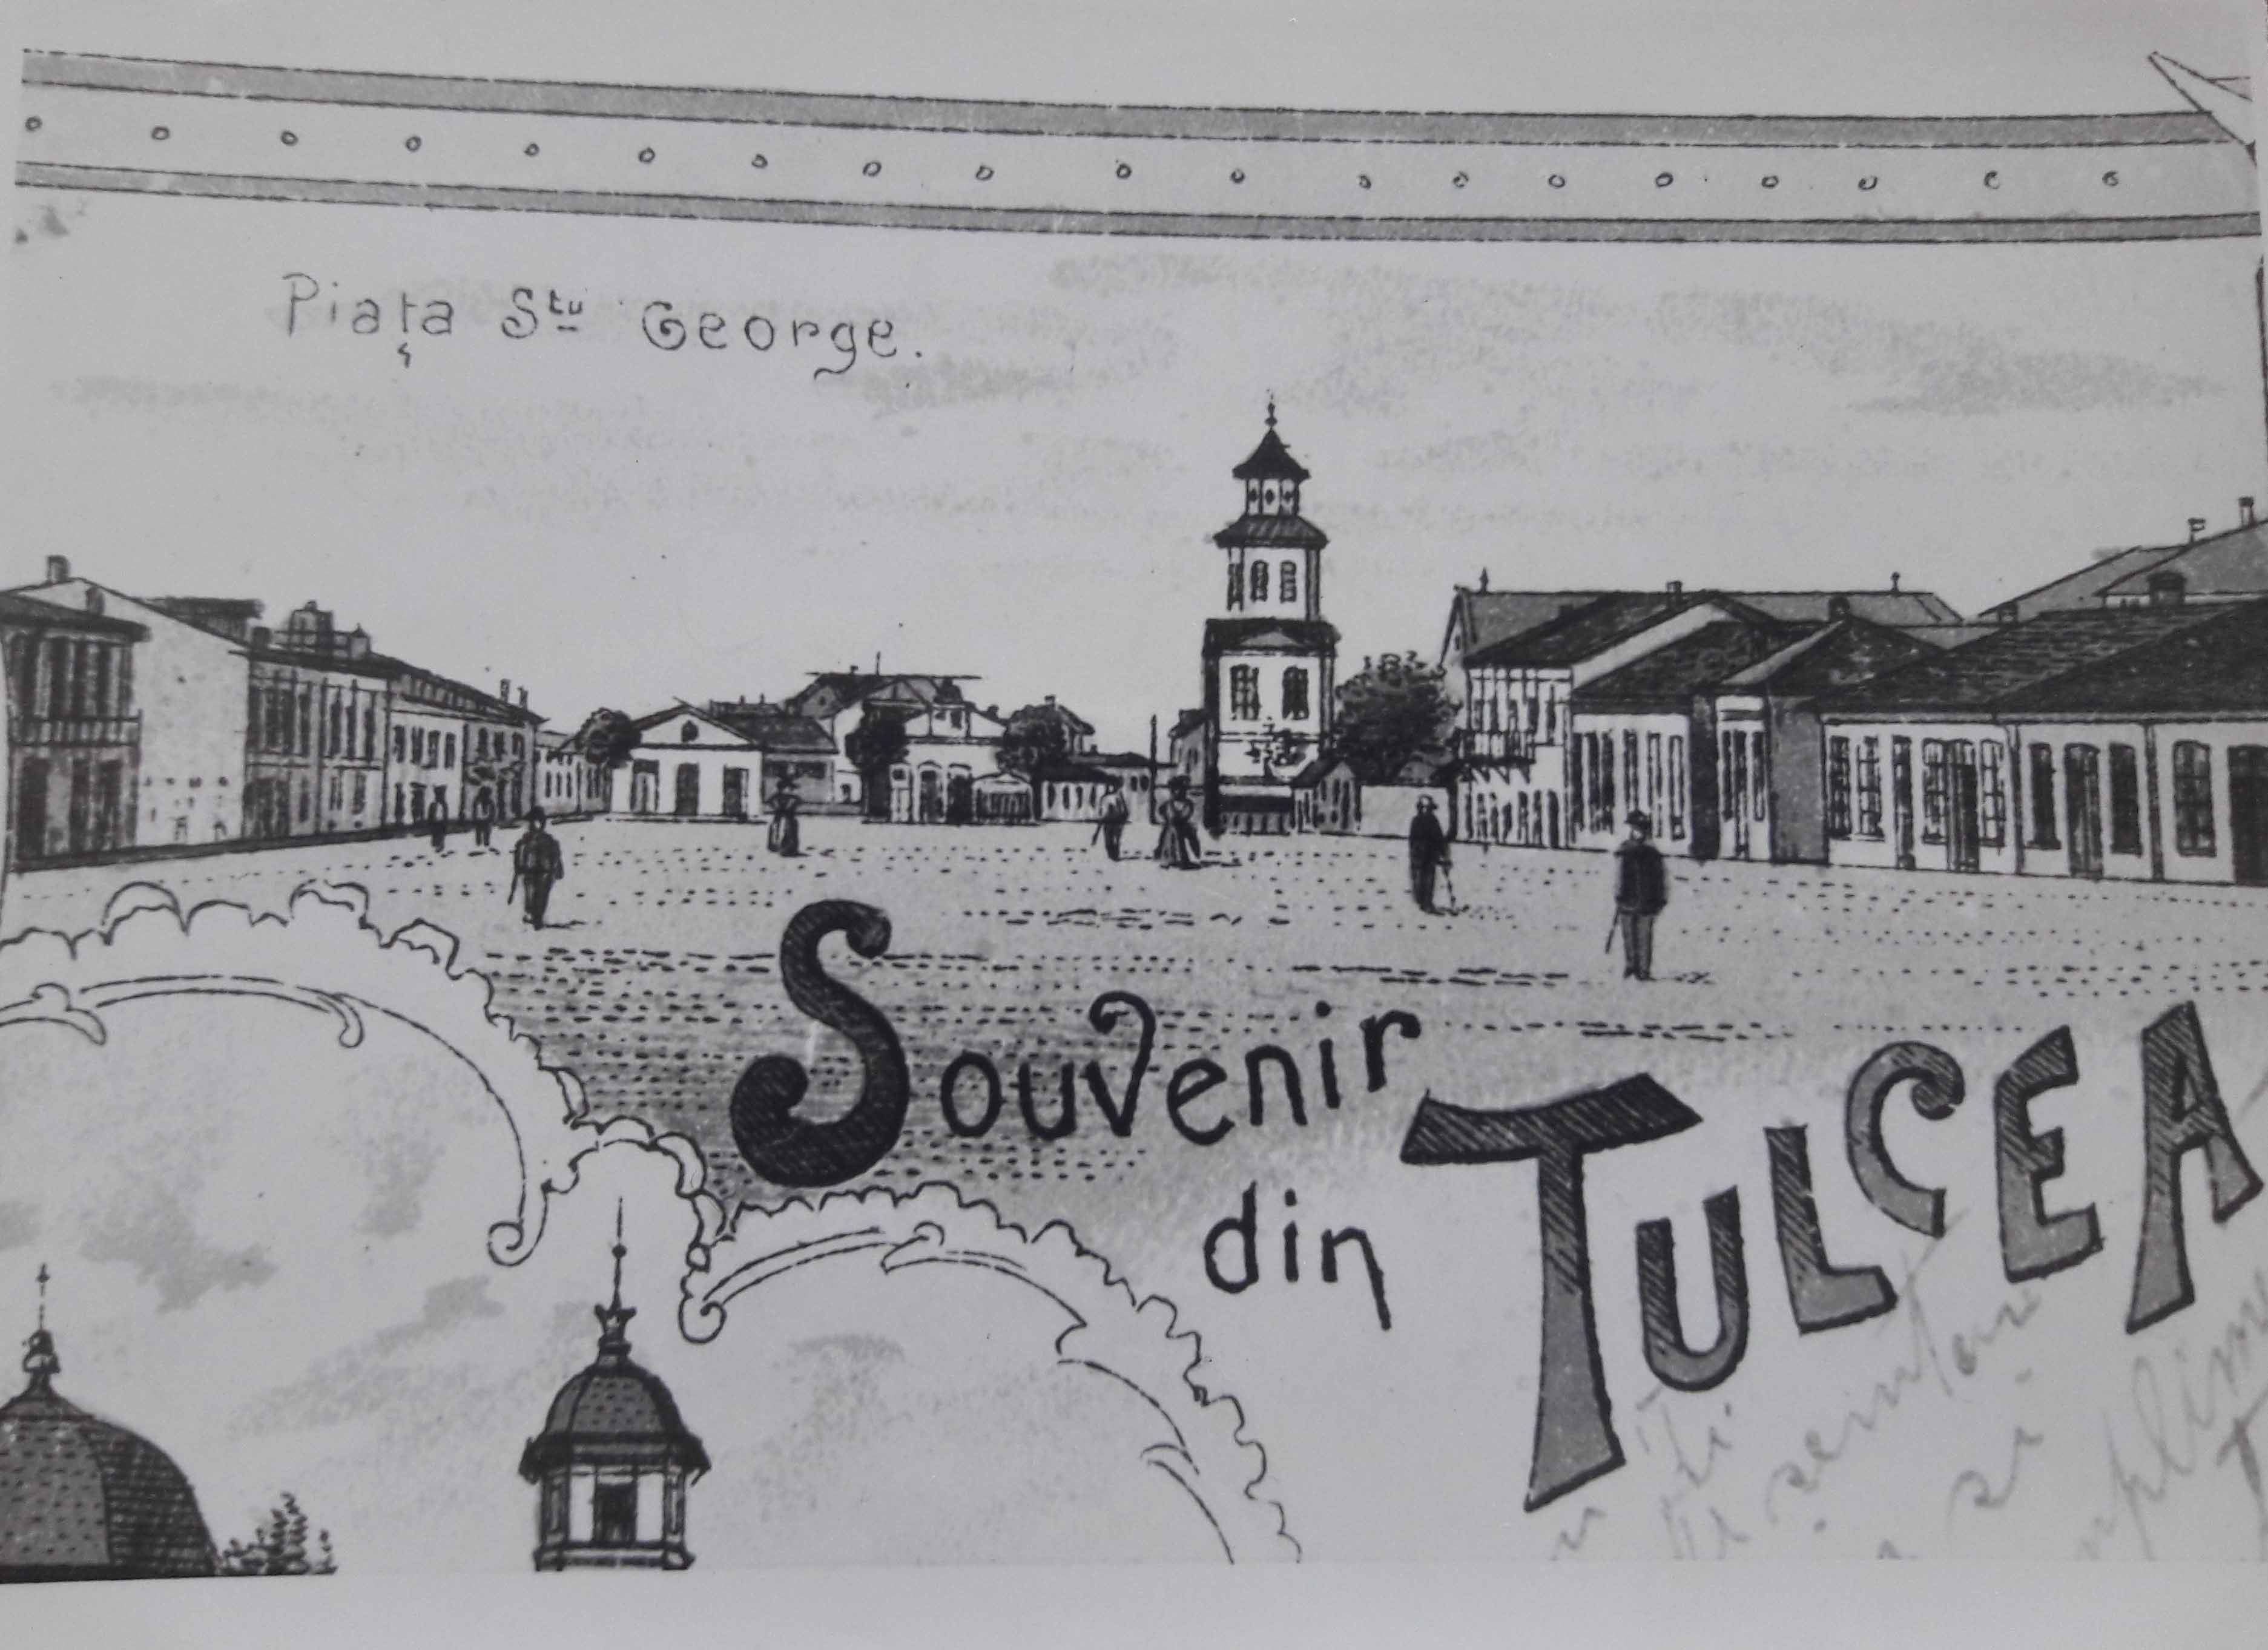 Piața Stu George.
Souvenir
din TULCEA
și